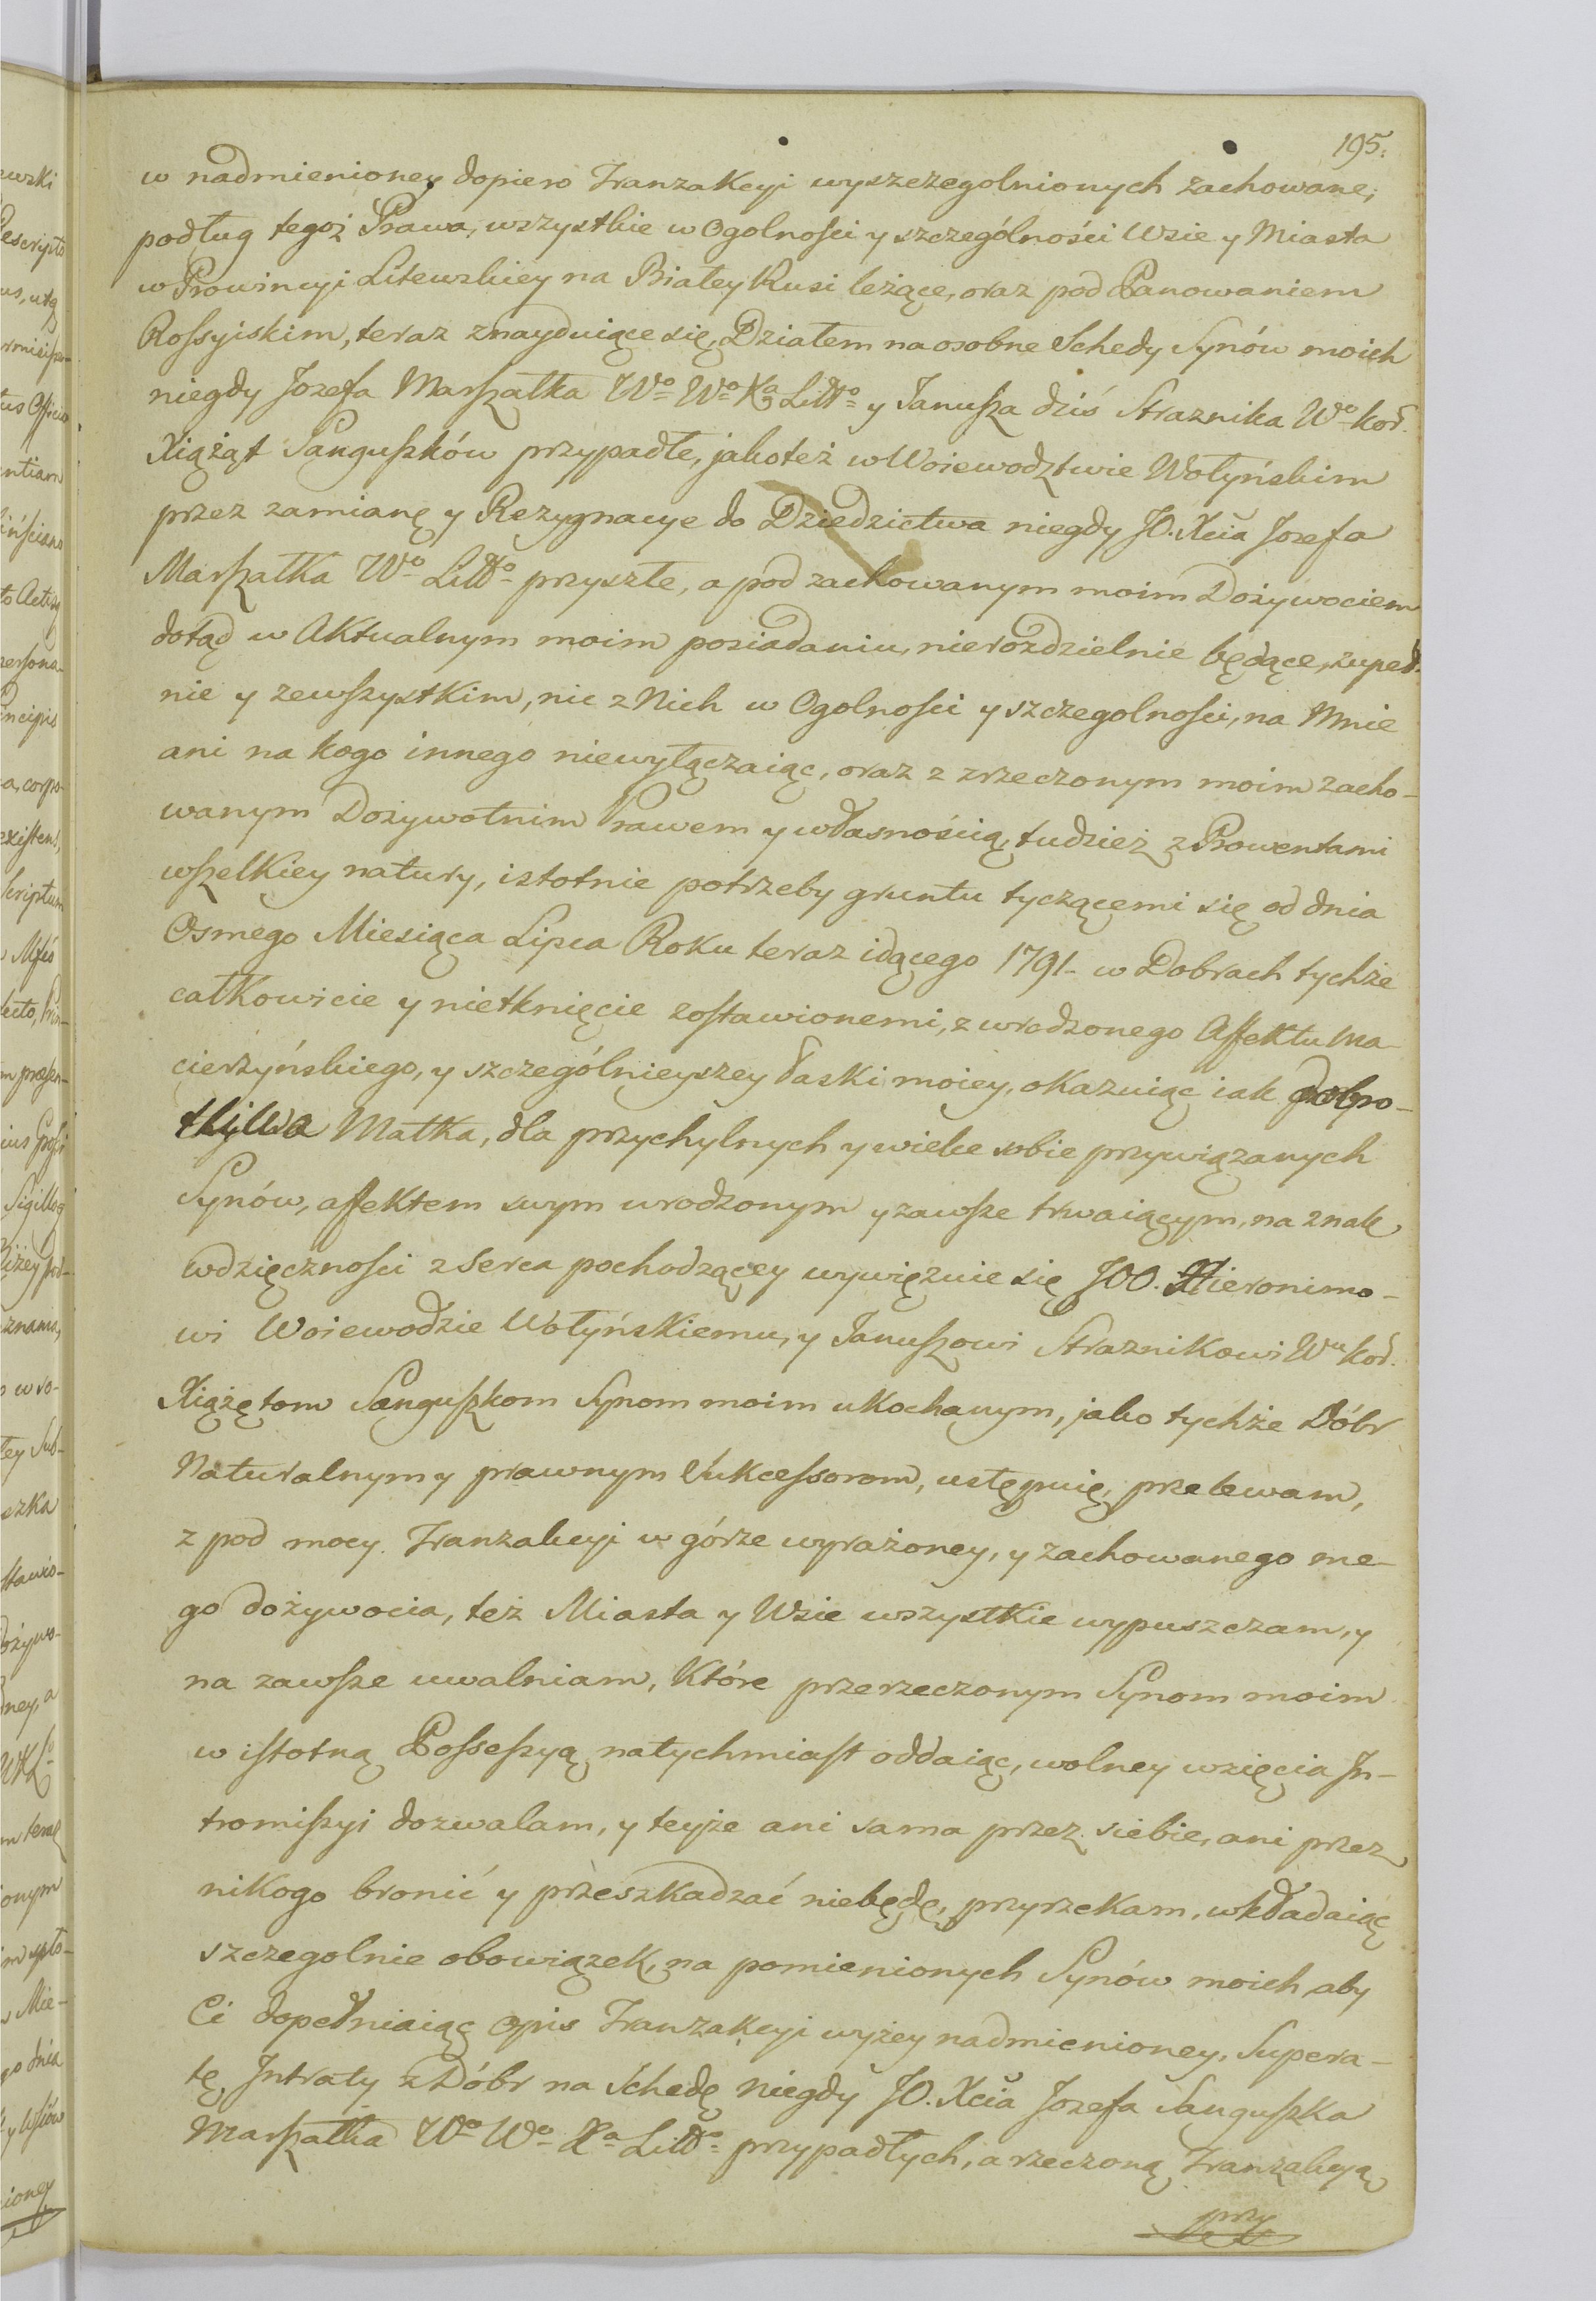 195.
w nadmienioney dopiero Tranzakcyi wyszczegolnionych zachowane,
podług tegoż Prawa, wszystkie w Ogolności y szczególności Wsie y Miasta
w Prowincyi Litewskiey na Białey Rusi leżące, oraz pod Panowaniem
Rossyiskim, teraz znayduiące się, Działem na osobne Schedy Synów moich
niegdy Jozefa Marszałka Wo Wo Xa Litto y Janusza dziś Straznika Wo kor.
Xiążąt Sanguszków przypadłe, jakoteż w Woiewodztwie Wołyńskim
przez zamianę y Rezygnacye do Dziedzictwa niegdy JO. Xcia Jozefa
Marszałka Wo Litto przyszłe, a pod zachowanym moim Dożywociem
dotąd w Aktualnym moim posiadaniu, nierozdzielnie będące, zupeł-
nie y zewszystkim, nic z Nich w Ogolności y szczegolności, na Mnie
ani na kogo innego niewyłączaiąc, oraz z rzeczonym moim zacho-
wanym Dożywotnim Prawem y własnością, tudzież z Prowentami
wszelkiey natury, istotnie potrzeby gruntu tyczącemi się od dnia
Osmego Miesiąca Lipca Roku teraz idącego 1791. w Dobrach tychże
całkowicie y nietknięcie zostawionemi, z wrodzonego Affektu Ma-
cierzyńskiego, y szczególnieyszey łaski moiey, okazuiąc iak
Matka, dla przychylnych y wiele sobie przywiązanych
Synów, affektem swym wrodzonym y zawsze trwaiącym, na znak
wdzięczności z serca pochodzącey wywięzuie się JOO. Hieronimo-
wi Woiewodzie Wołyńskiemu, y Januszowi Straznikowi Wu kor.
Xiążętom Sanguszkom Synom moim ukochanym, jako tychże Dóbr
Naturalnym y prawnym Sukcessorom, ustępuię, przelewam,
z pod mocy Tranzakcyi w górze wyrażoney, y zachowanego me-
go dożywocia, też Miasta y Wsie wszystkie wypuszczam, y
na zawsze uwalniam, Które przerzeczonym Synom moim
w istotną Possessyą natychmiast oddaiąc, wolney wzięcia In-
tromissyi dozwalam, y teyże ani sama przez siebie, ani przez
nikogo bronić y przeszkadzać niebędę, przyrzekam, wkładaiąc
szczegolnie obowiązek, na pomienionych Synów moich aby
Ci dopełniaiąc opis Tranzakcyi wyżey nadmienioney, Supera-
tę Intraty z Dóbr na Schedę niegdy JO. Xcia Jozefa Sanguszka
Marszałka Wo Wo Xa Litto przypadłych, a rzeczoną Tranzakcyą
przy